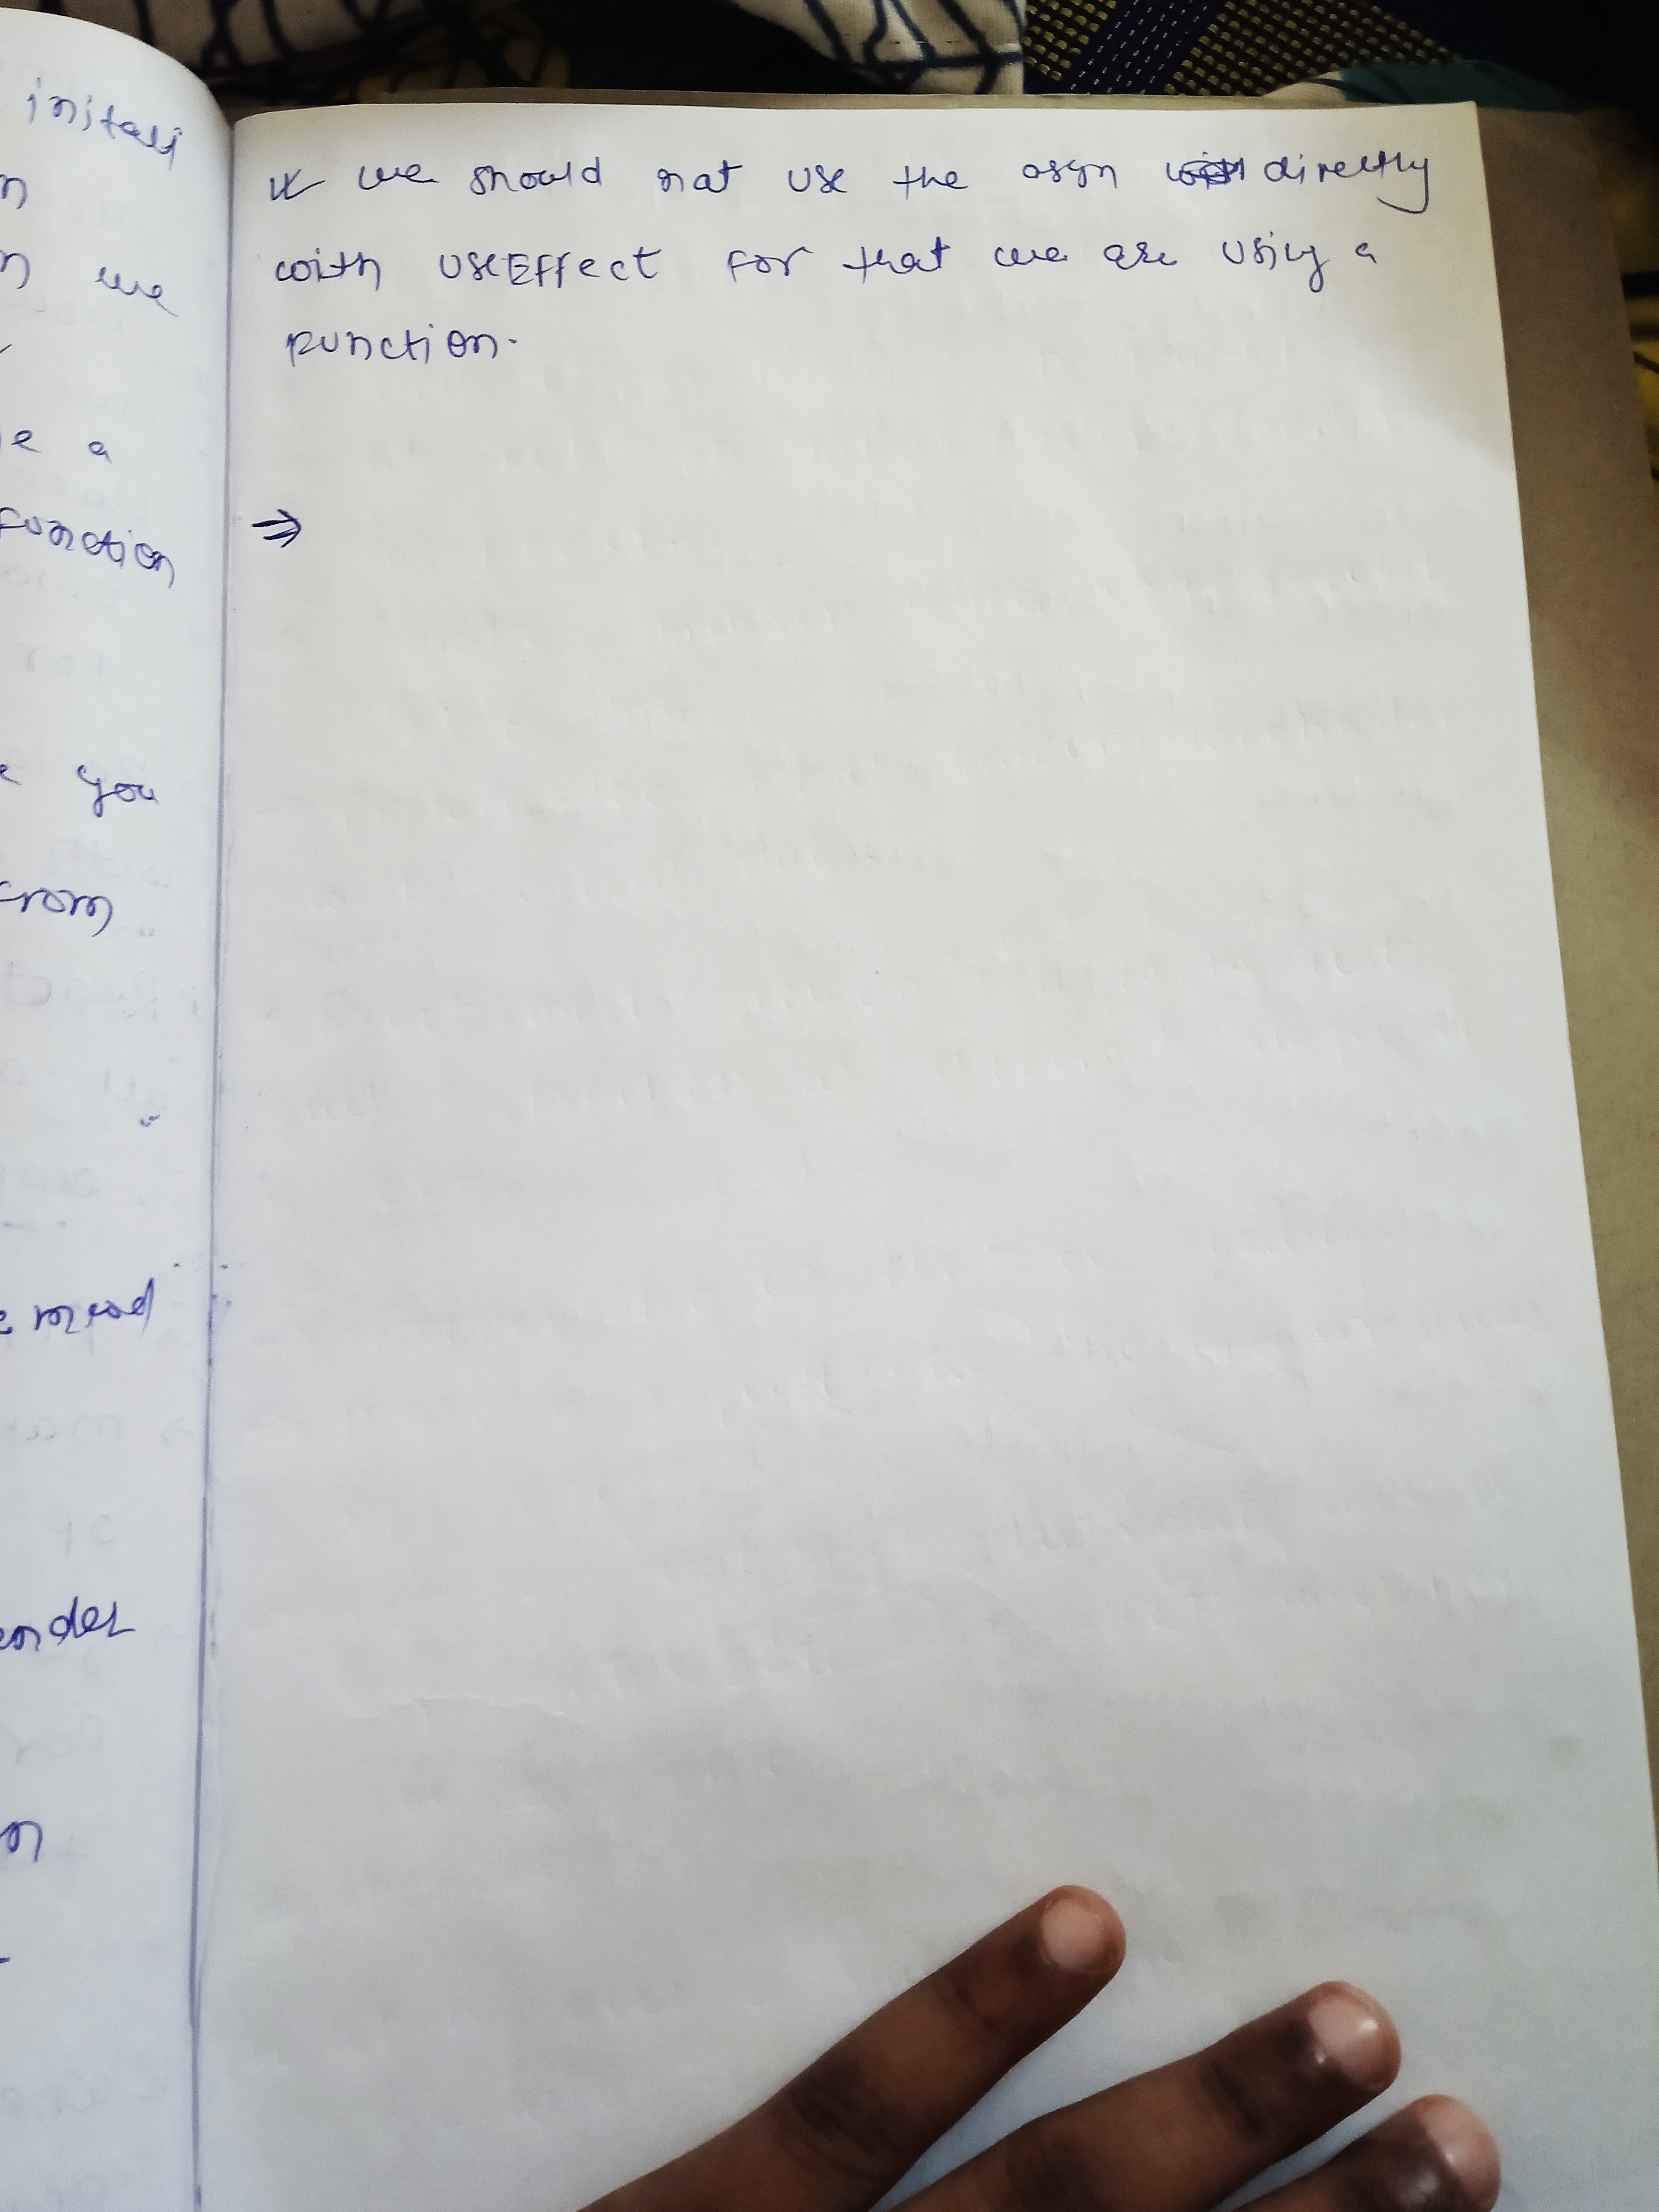 initali
n
n we
e a
function
you
from
mend
ender
n
we should not use the asyn directly
with USEEffect for that we are using a
function.
⇒